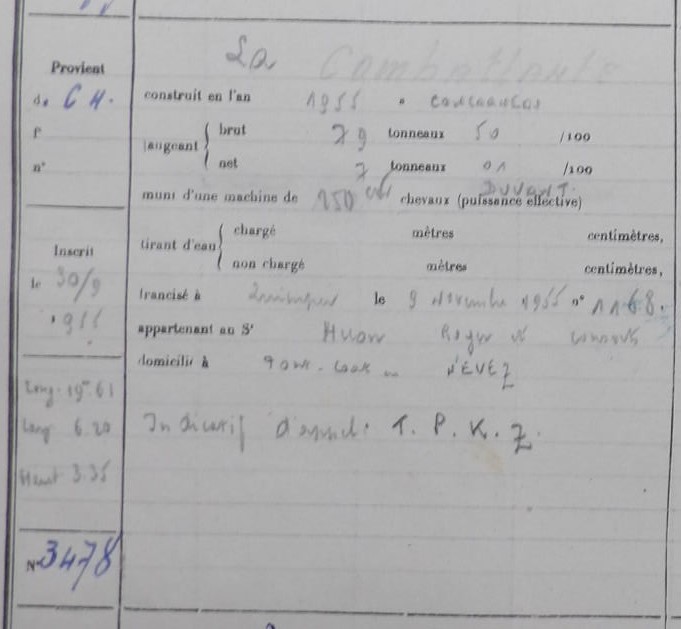 La Combattante
Provient
de CH. construit en l'an 1955 à Concarneau
f° jaugeant brut 79 tonneaux 50 /100
n° net 7 tonneaux 01 /100
muni d'une machine de 150 chevaux (puissance effective) DUVANT.
tirant d'eau chargé mètres centimètres,
non chargé mètres centimètres,
Inscrit
le 30/9
1955
francisé à Quimper le 9 Novembre 1955 n° 1168.
appartenant au Sr Huon Roger et consorts
domicilié à NÉVEZ
Long. 19m.61
Larg 6.20
Haut 3.35
Indicatif d'appel: T. P. K. Z.
N° 3478